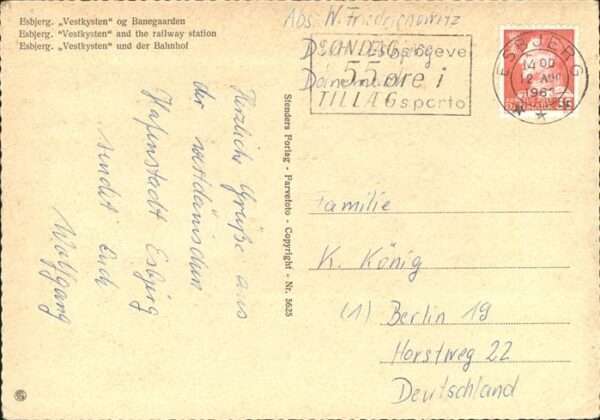 Esbjerg. „Vestkysten" og Banegaarden
Esbjerg. "Vestkysten" and the railway station
Esbjerg. „Vestkysten" und der Bahnhof
Abs. W. Friedrichowitz
Esbjerg
Dänemark
SØNDAGS
55 øre i
TILLÆGSporto
ESBJERG
14 00
12
196
Herzliche Grüße aus
der westdänischen
Hafenstadt Esbjerg
sendet Euch
Wolfgang
Stenders Forlag - Farvefoto - Copyright - Nr. 3625
Familie
K. König
(1) Berlin 19
Horstweg 22
Deutschland